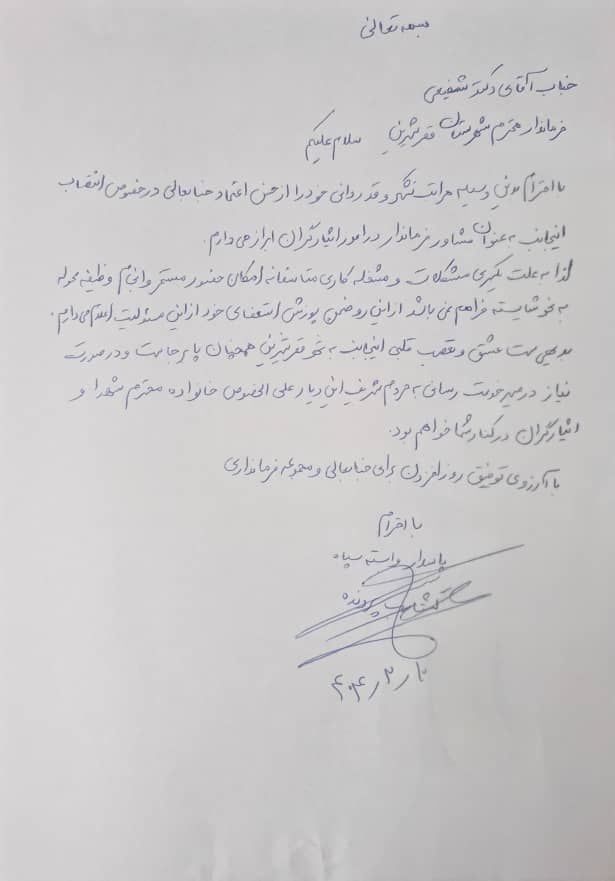 بسمه تعالی
جناب آقای دکتر شفیعی
فرماندار محترم شهرستان قصرشیرین سلام علیکم
با احترام بدین وسیله مراتب تشکر و قدردانی خود را از حسن اعتماد جنابعالی در خصوص انتصاب
اینجانب به عنوان مشاور فرماندار در امور ایثارگران ابراز می دارم.
لذا به علت پیگیری مشکلات و مشغله کاری متاسفانه امکان حضور مستمر و انجام وظیفه محوله
به نحو شایسته فراهم نمی باشد از این رو ضمن پوزش استعفای خود از این مسئولیت اعلام می دارم.
بدیهی ست عشق و تعصب قلبی اینجانب به قصرشیرین همچنان پا برجاست و در صورت
نیاز در مسیر خدمت رسانی به مردم شریف این دیار علی الخصوص خانواده محترم شهدا و
ایثارگران در کنار شما خواهم بود.
با آرزوی توفیق روز افزون برای جنابعالی و مجموعه فرمانداری
با احترام
پاسدار سپاه